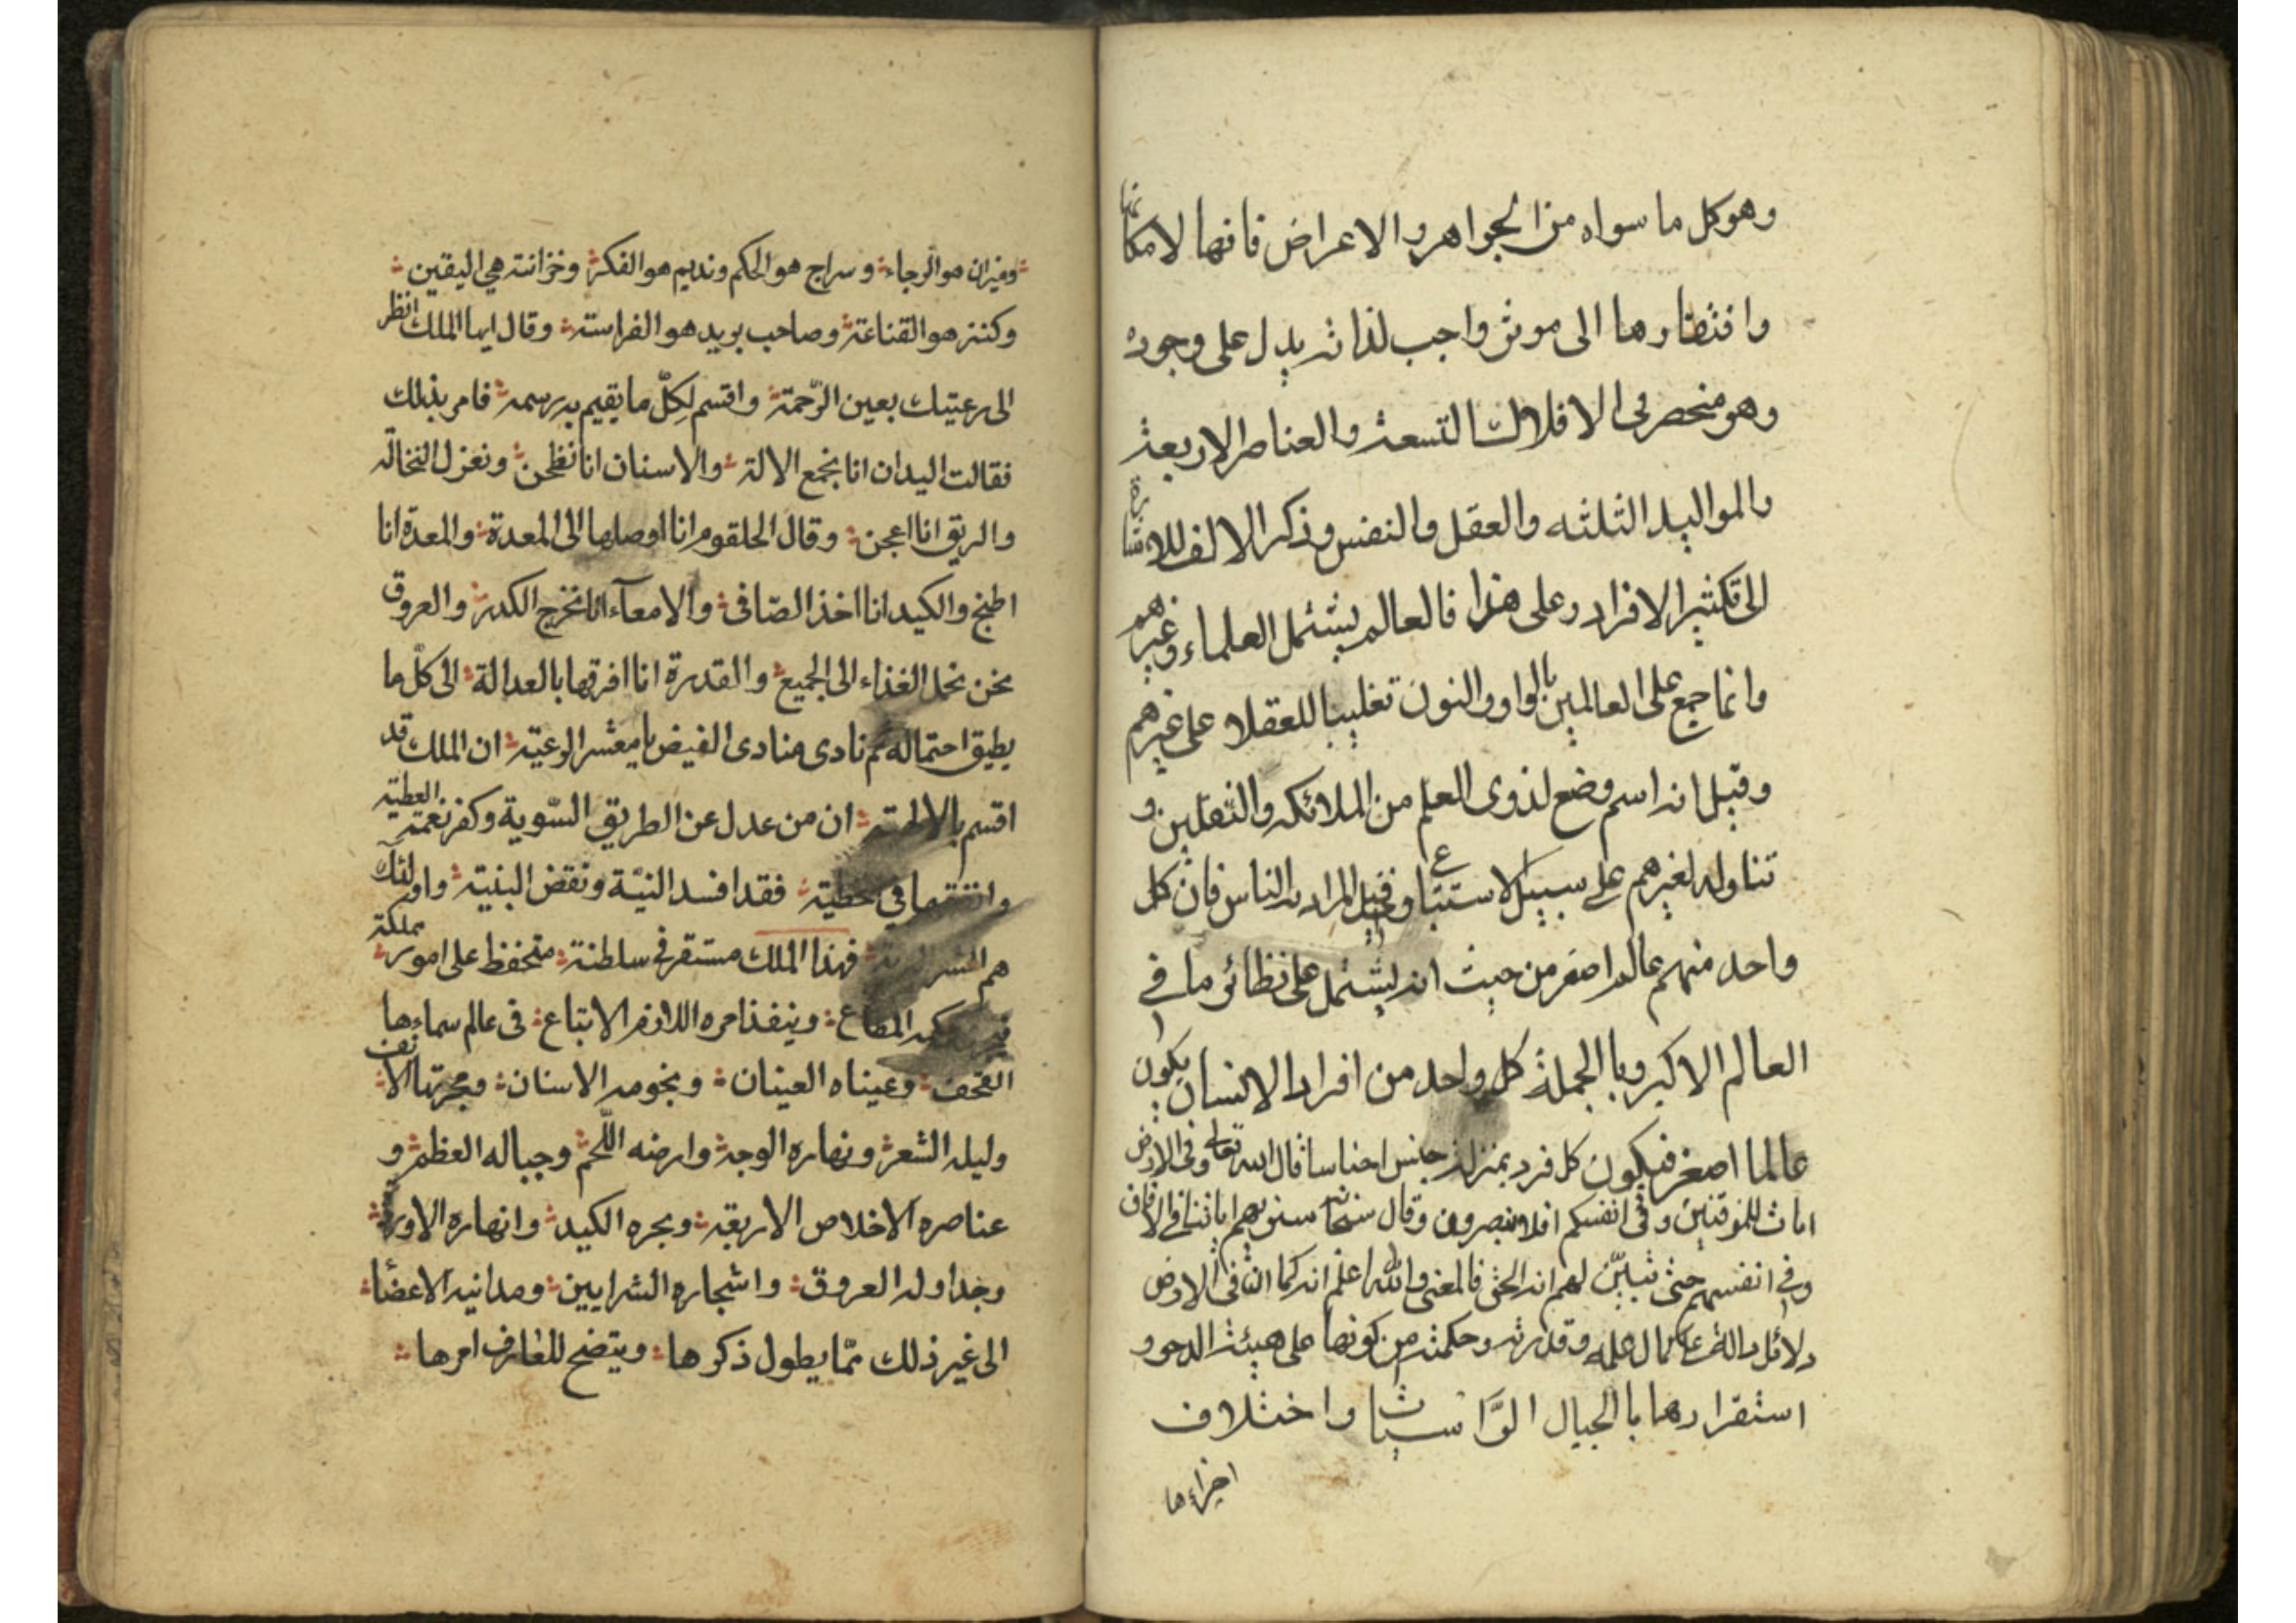 وهو كل ما سواه من الجواهر والاعراض فانها لامكانها
وافتقارها الى موثر واجب لذاته يدل على وجوده
وهو منحصر فى الافلاك التسعة والعناصر الاربعة
والمواليد الثلثه والعقل والنفس وذكر الالف للاشارة
الى تكثير الافراد وعلى هذا فالعالم يشتمل العلماء وغيرهم
وانما جمع على العالمين بالواو والنون تغليبا للعقلاء على غيرهم
وقيل انه اسم وضع لذوى العلم من الملائكه والثقلين و
تناوله لغيرهم على سبيل الاستتباع وقيل المراد به الناس فان كل
واحد منهم عالم اصغر من حيث انه يشتمل على نظائر ما في
العالم الاكبر وبالجملة كل واحد من افراد الانسان يكون
عالما اصغر فيكون كل فرد بمنزلة جنس اجناسا قال الله تعالى وفى الارض
ايات للموقنين وفى انفسكم افلا تبصرون وقال سبحانه سنريهم اياتنا في الافاق
وفي انفسهم حتى تبيّن لهم انه الحق فالمعنى والله اعلم انه كما ان فى الارض
دلائل دالة على كمال علمه وقدرته وحكمته من كونها على هيئت الدحو و
استقرارها بالجبال الرّاسيات واختلاف
اجزاءها
وميزان هو الرجاء وسراج هو الحكم ونديم هو الفكر وخزانته هي اليقين
وكنز هو القناعة وصاحب بريد هو الفراسته وقال ايها الملك انظر
الى رعيتك بعين الرّحمة واقسم لكلّ ما يقيم به رسمه فامر بذلك
فقالت اليدان انا نجمع الالة والاسنان انا نطحن ونعزل النخالة
والريق انا اعجن وقال الحلقوم انا اوصلها الى المعدة والمعدة انا
اطبخ والكبد انا اخذ الصّافى والامعآء انا نخرج الكدر والعروق
نحن نحمل الغذاء الى الجميع والقدرة انا افرقها بالعدالة الى كلّ ما
يطيق احتماله ثم نادى منادى الفيض يا معشر الرعيّة ان الملك قد
اقسم بالالهية ان من عدل عن الطريق السّوية وكفر نعمته العطيّة
وانفقها في خطية فقد افسد النيّة ونقض البنية واولئك
هم البرية فهذا الملك مستقر في سلطنة متحفظ على امور مملكة
المطاع وينفذ امره اللازم الاتباع فى عالم سماءها
القحف وعيناه العينان ونجومه الاسنان ومجرتها الانف
وليله الشعر ونهاره الوجه وارضه اللّحم وجباله العظم و
عناصره الاخلاص الاربعة وبحره الكبد وانهاره الاوردة
وجداوله العروق واشجاره الشرايين ومدانيه الاعضاء
الى غير ذلك ممّا يطول ذكرها ويتضح للعارف امرها